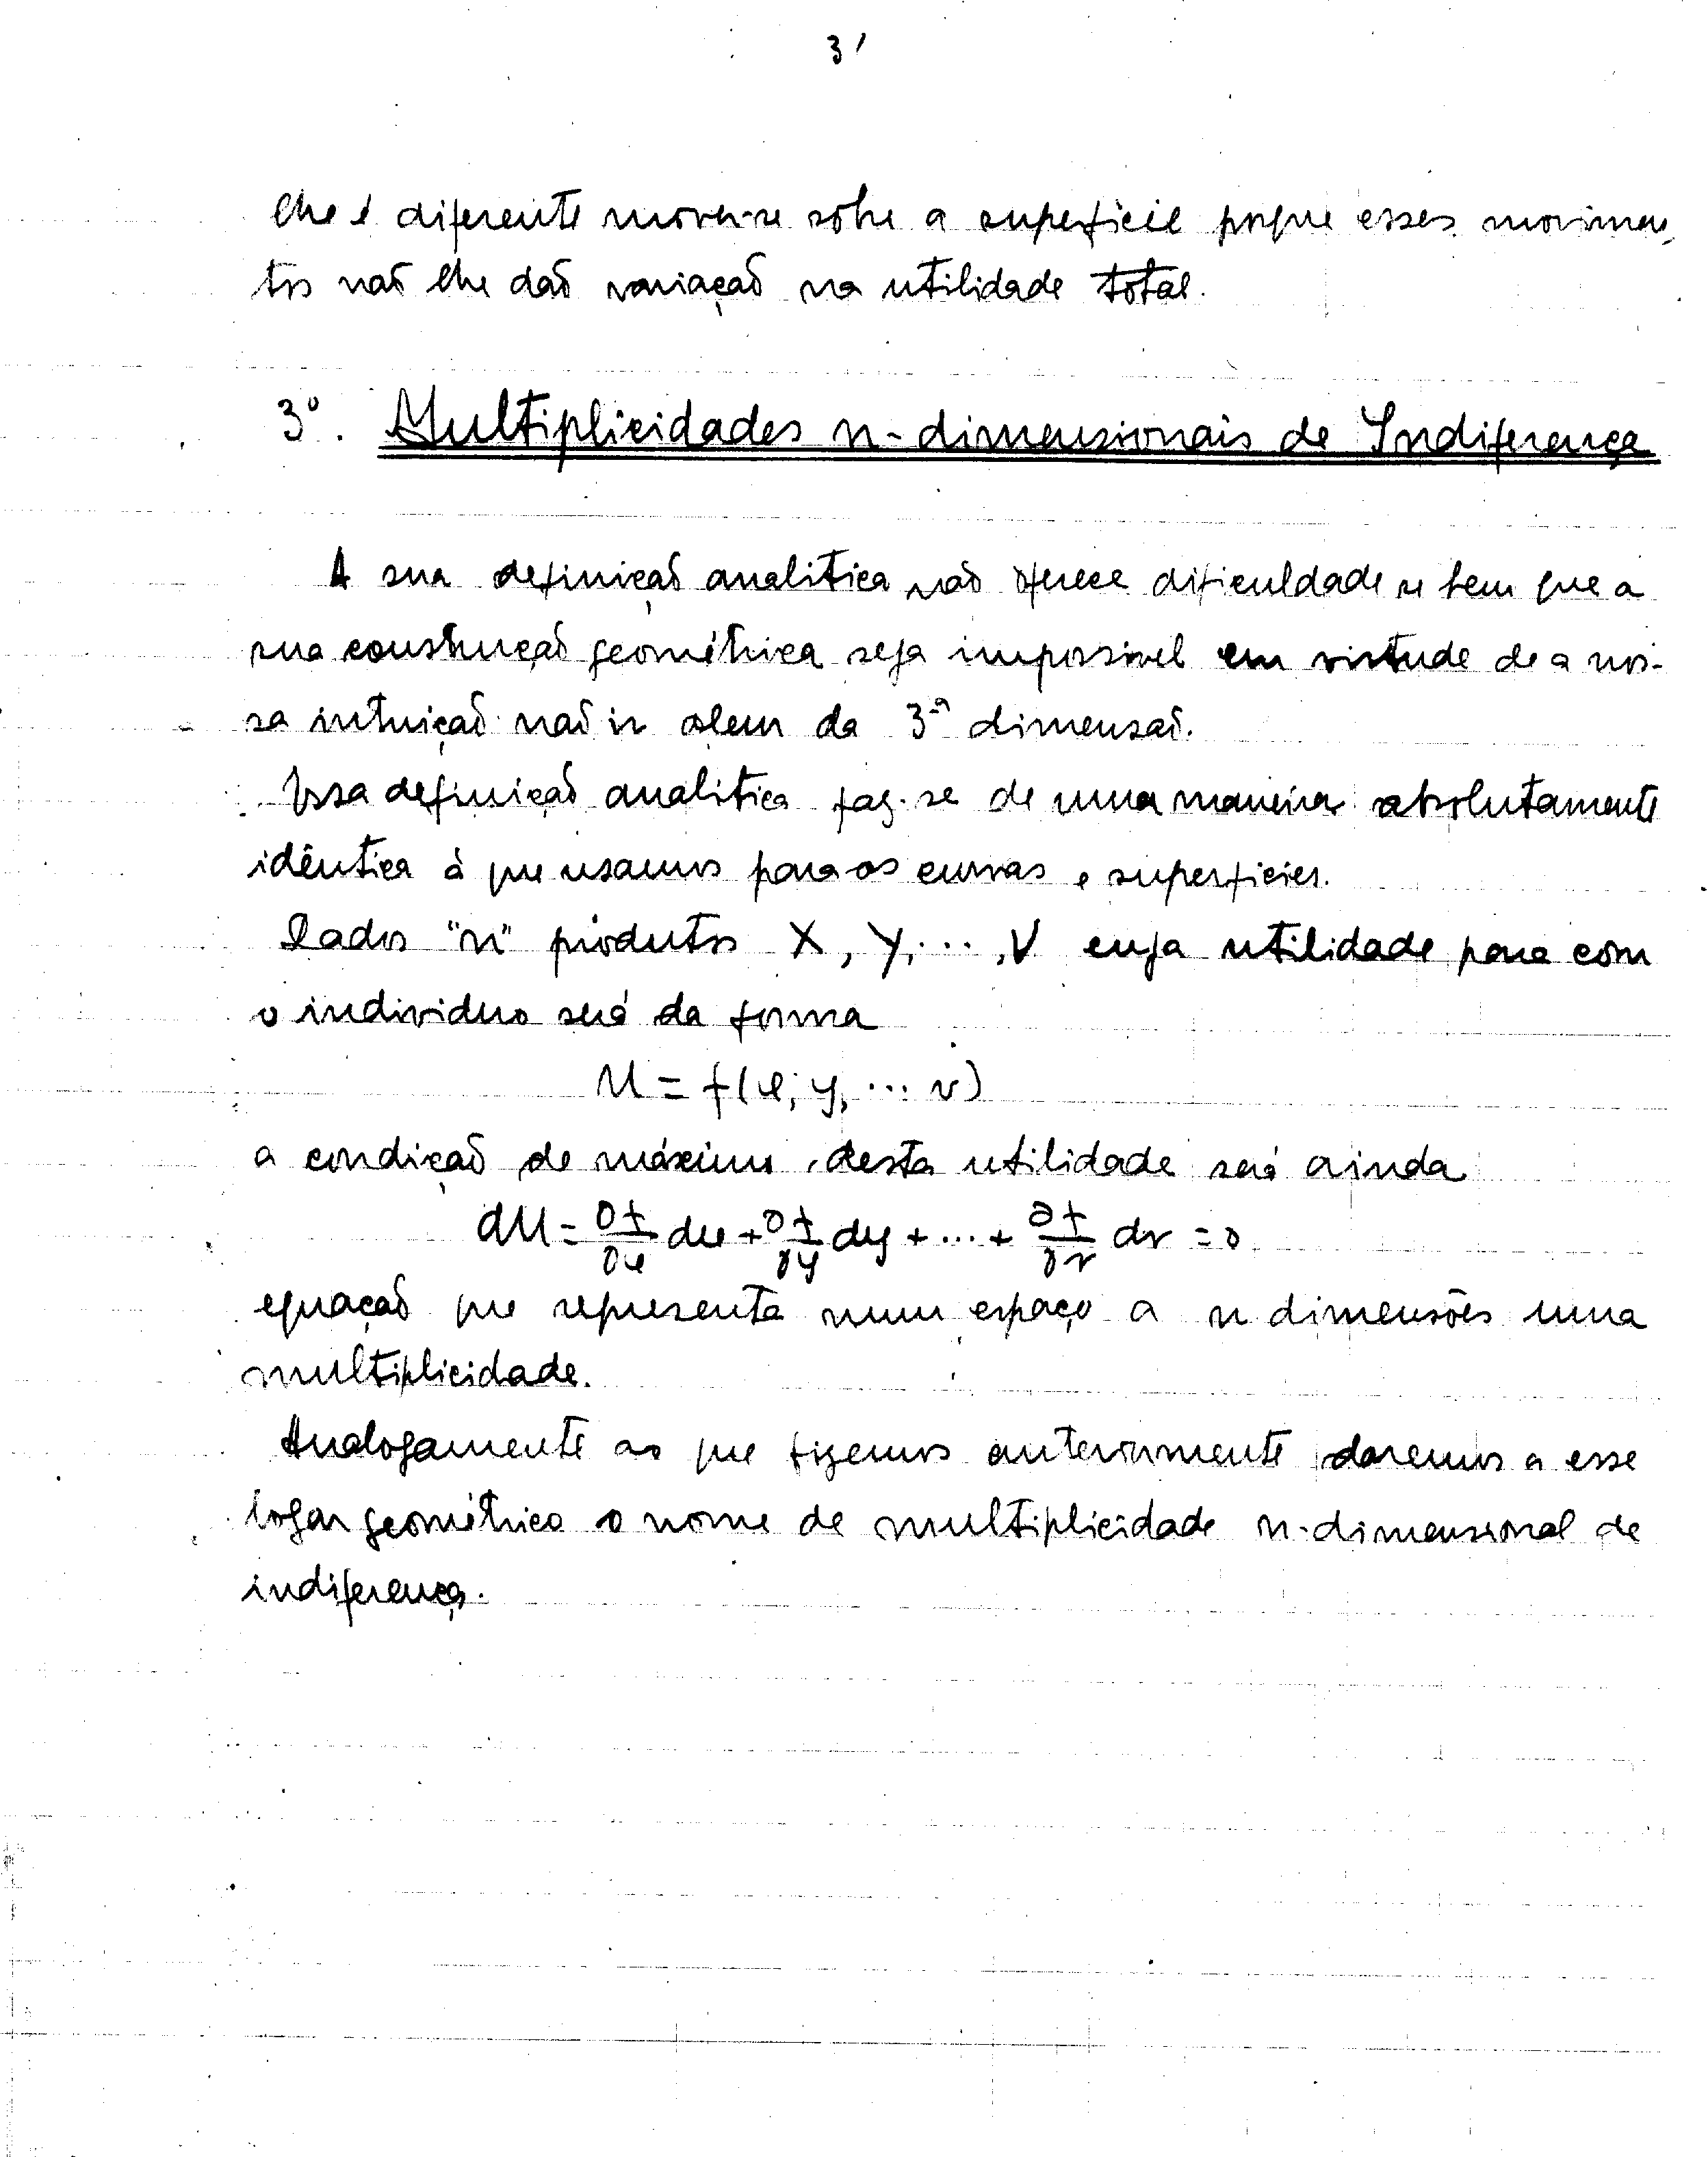 31
lhe é diferente mover-se sôbre a superficie porque esses movimen-
tos não lhe dão variação na utilidade total.
3º. Multiplicidades n-dimensionais de Indiferença
A sua definição analitica não oferece dificuldade se bem que a
sua construção geométrica seja impossivel em virtude de a nos-
sa intuição não ir alem da 3ª dimensão.
Essa definição analitica faz-se de uma maneira absolutamente
idêntica à que usamos para as curvas e superficies.
Dados "n" produtos X, Y, ..., V cuja utilidade para com
o individuo será da forma
U = f(x, y, ... v)
a condição de máximo desta utilidade será ainda
dU = ∂f/∂x dx + ∂f/∂y dy + ... + ∂f/∂v dv = 0
equação que representa num espaço a n dimensões uma
multiplicidade.
Analogamente ao que fizemos anteriormente daremos a esse
logar geométrico o nome de multiplicidade n-dimensional de
indiferença.